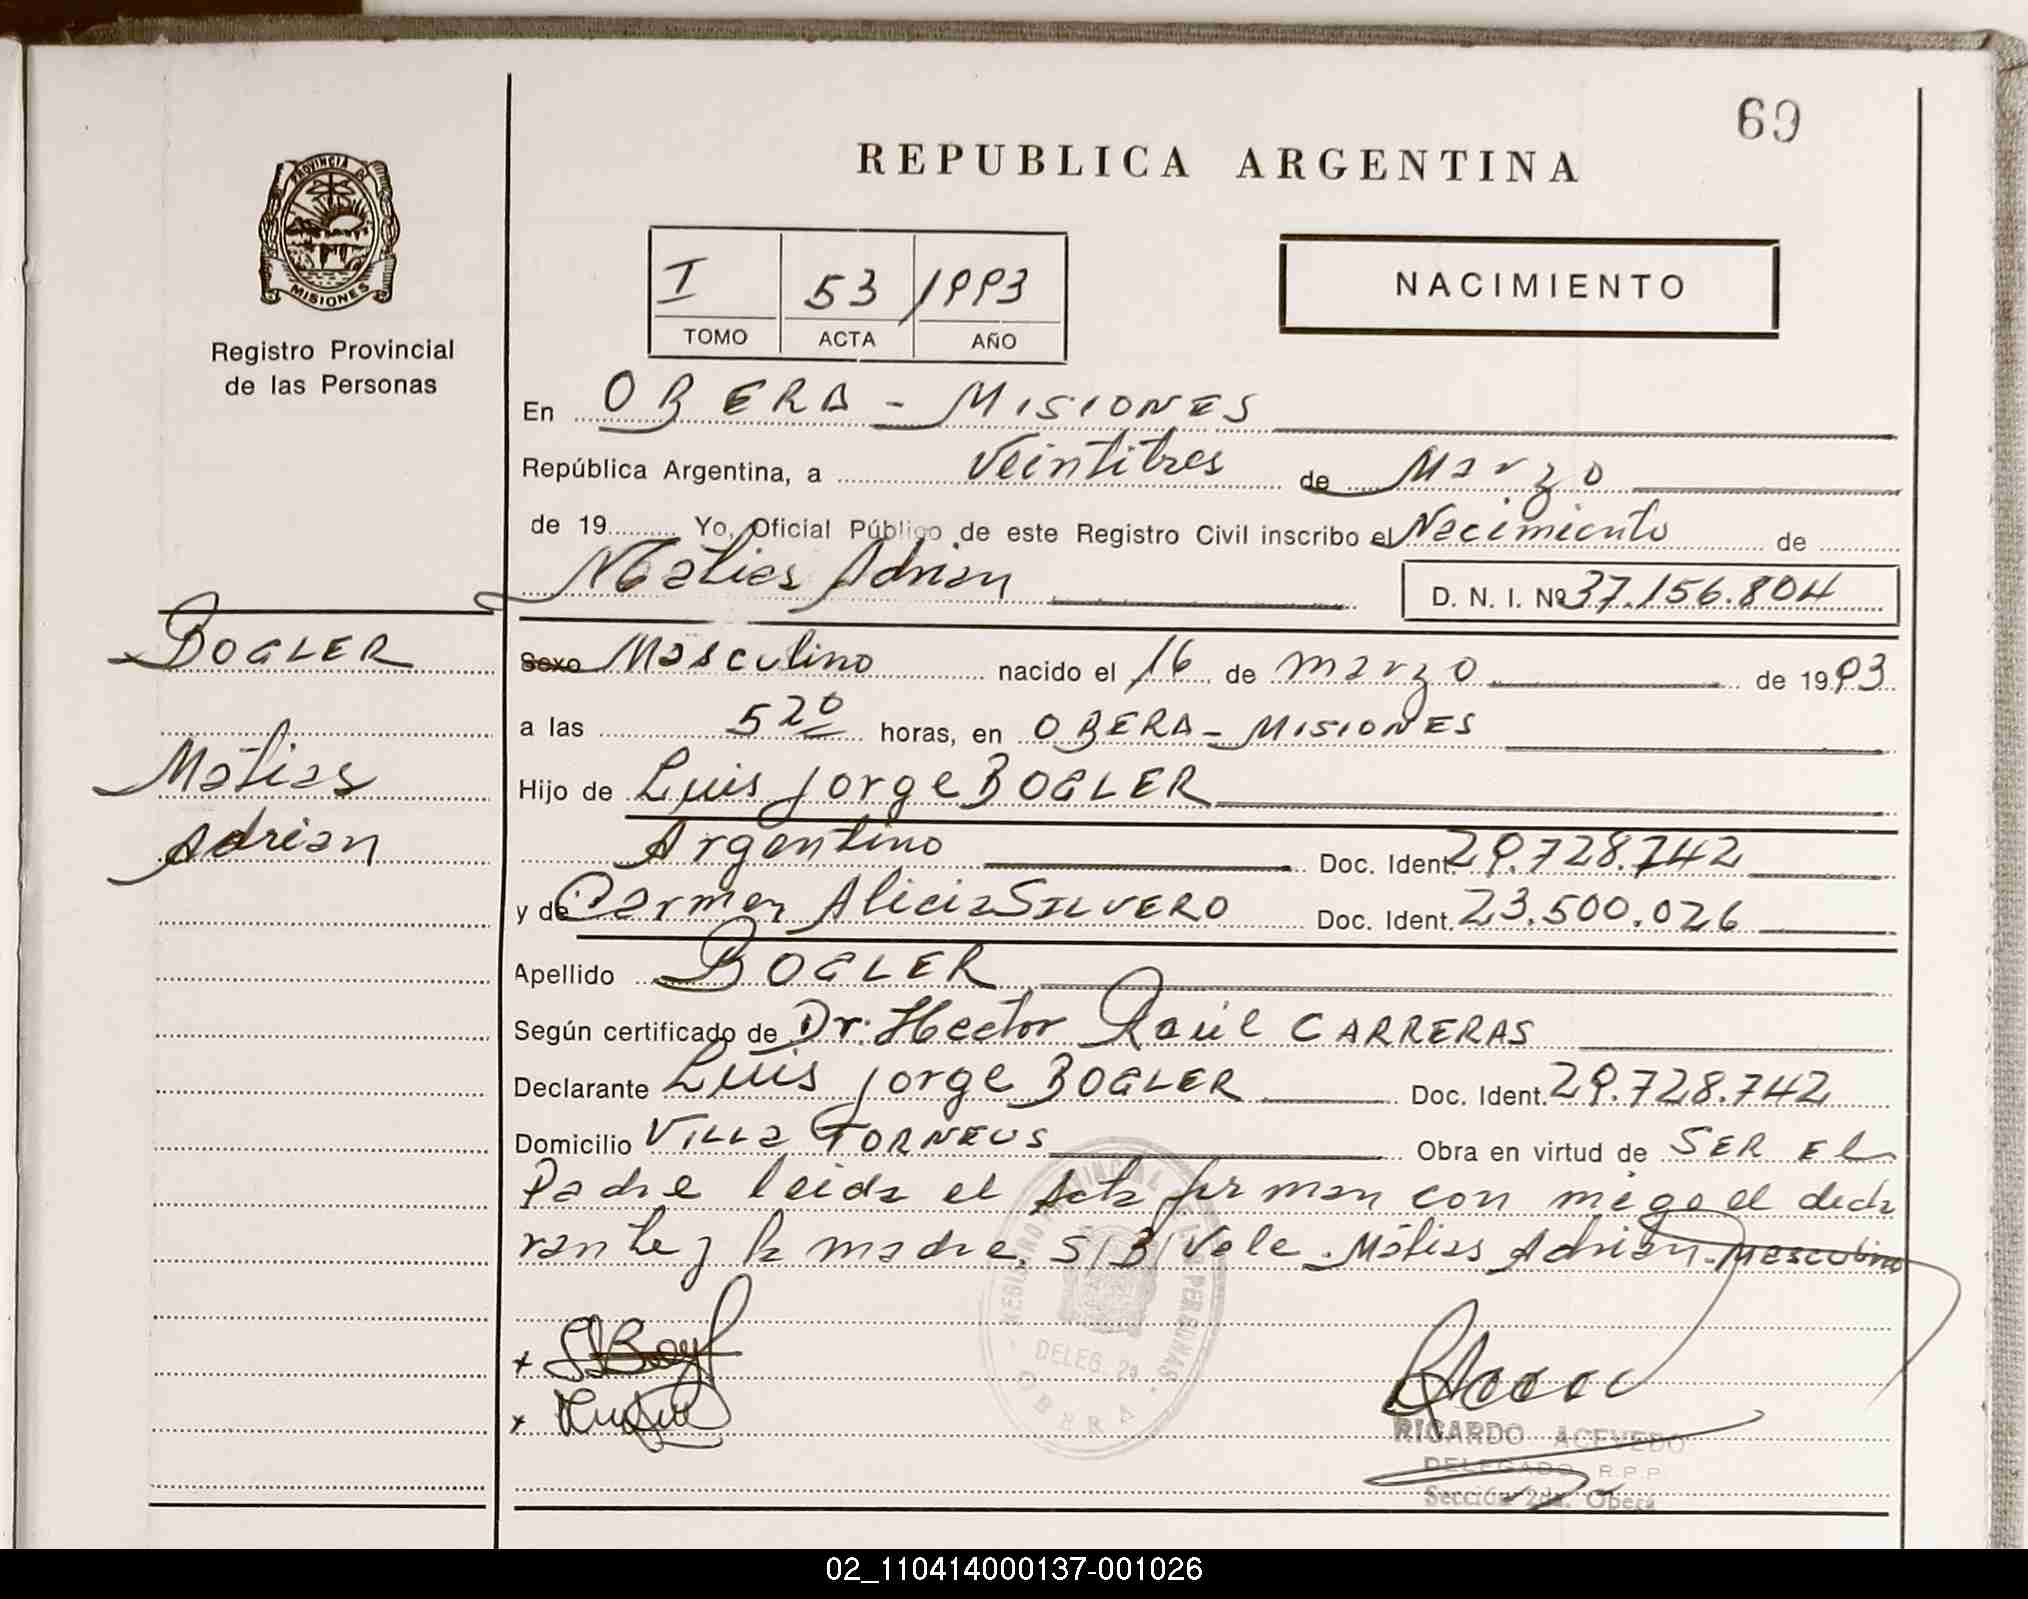 69
REPUBLICA ARGENTINA
PROVINCIA DE
MISIONES
Registro Provincial
de las Personas
I 53 /1993
TOMO ACTA AÑO
NACIMIENTO
En OBERA - MISIONES
República Argentina, a Veintitres de Marzo
de 19 Yo, Oficial Público de este Registro Civil inscribo el Nacimiento de
Matias Adrian D. N. I. Nº 37.156.804
BOGLER
Matias
Adrian
Sexo Masculino nacido el 16 de marzo de 1993
a las 5 20 horas, en OBERA - MISIONES
Hijo de Luis Jorge BOGLER
Argentino Doc. Ident. 29.728.742
y de Carmen Alicia SILVERO Doc. Ident. 23.500.026
Apellido BOGLER
Según certificado de Dr: Hector Raúl CARRERAS
Declarante Luis Jorge BOGLER Doc. Ident. 29.728.742
Domicilio Villa TORNEUS Obra en virtud de SER El
Padre leida el Acta firman con migo el decla
rante y la madre. S/B/ Vale. Matias Adrian. Masculino
REGISTRO PROVINCIAL DE LAS PERSONAS
DELEG. 2a
OBERA
RICARDO ACEVEDO
DELEGADO R.P.P.
Sección 2da. Oberá
02_110414000137-001026